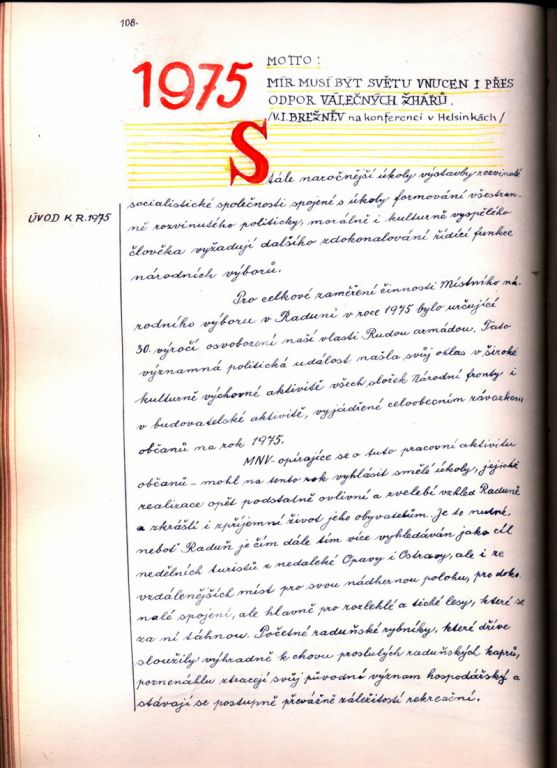 108.
1975
MOTTO:
MÍR MUSÍ BÝT SVĚTU VNUCEN I PŘES
ODPOR VÁLEČNÝCH ŽHÁŘŮ.
/V.I.BREŽNĚV na konferenci v Helsinkách/
Stále naročnější úkoly výstavby rozvinuté
socialistické společnosti spojené s úkoly formování všestran-
ÚVOD K R.1975
ně rozvinutého politicky, morálně i kulturně vyspělého
člověka vyžadují dalšího zdokonalování řídící funkce
národních výborů.
Pro celkové zaměření činnosti Místního ná-
rodního výboru v Raduni v roce 1975 bylo určující
30. výročí osvobození naší vlasti Rudou armádou. Tato
významná politická událost našla svůj ohlas v široké
kulturně výchovné aktivitě všech složek Národní fronty i
v budovatelské aktivitě, vyjádřené celoobecním závazkem
občanů na rok 1975.
MNV-opírajíce se o tuto pracovní aktivitu
občanů - mohl na tento rok vyhlásit smělé úkoly, jejichž
realizace opět podstatně ovlivní a zvelebí vzhled Raduně
a zkrášlí i zpříjemní život jeho obyvatelům. Je to nutné,
neboť Raduň je čím dále tím více vyhledáván jako cíl
nedělních turistů z nedaleké Opavy i Ostravy, ale i ze
vzdálenějších míst pro svou nádhernou polohu, pro doko-
nalé spojení, ale hlavně pro rozlehlé a tiché lesy, které se
za ní táhnou. Početné raduňské rybníky, které dříve
sloužily výhradně k chovu proslulých raduňských kaprů,
poznenáhlu ztracejí svůj původní význam hospodářský a
stávají se postupně převážně záležitostí rekreační.